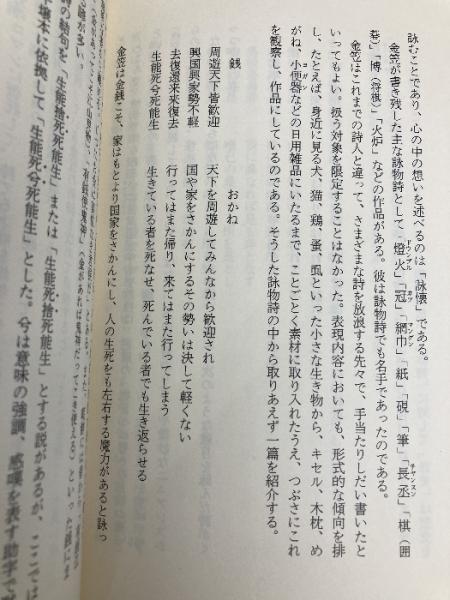 詠むことであり、心の中の想いを述べるのは「詠懐」である。
金笠が書き残した主な詠物詩として「燈火」「冠」「網巾」「紙」「硯」「筆」「長丞」「棋(囲
碁)」「博(将棋)」「火炉」などの作品がある。彼は詠物詩でも名手であったのである。
金笠はこれまでの詩人と違って、さまざまな詩を放浪する先々で、手当たりしだい書いたと
いってもよい。扱う対象を限定することはなかった。表現内容においても、形式的な傾向を排
し、たとえば、身近に見る犬、猫、鶏、蚤、虱といった小さな生き物から、キセル、木枕、め
がね、小便器などの日用雑品にいたるまで、ことごとく素材に取り入れたうえ、つぶさにこれ
を観察し、作品にしているのである。そうした詠物詩の中から取りあえず一篇を紹介する。
銭 おかね
周遊天下皆歓迎 天下を周遊してみんなから歓迎され
興国興家勢不軽 国や家をさかんにするその勢いは決して軽くない
去復還来来復去 行ってはまた帰り、来てはまた行ってしまう
生能死兮死能生 生きている者を死なせ、死んでいる者でも生き返らせる
金笠は金銭こそ、家はもとより国家をさかんにし、人の生死をも左右する魔力があると詠っ
の結句を「生能捨死死能生」または「生能死捨死能生」とする説があるが、ここでは
本に依拠して「生能死兮死能生」とした。兮は意味の強調、感嘆を表す助字で